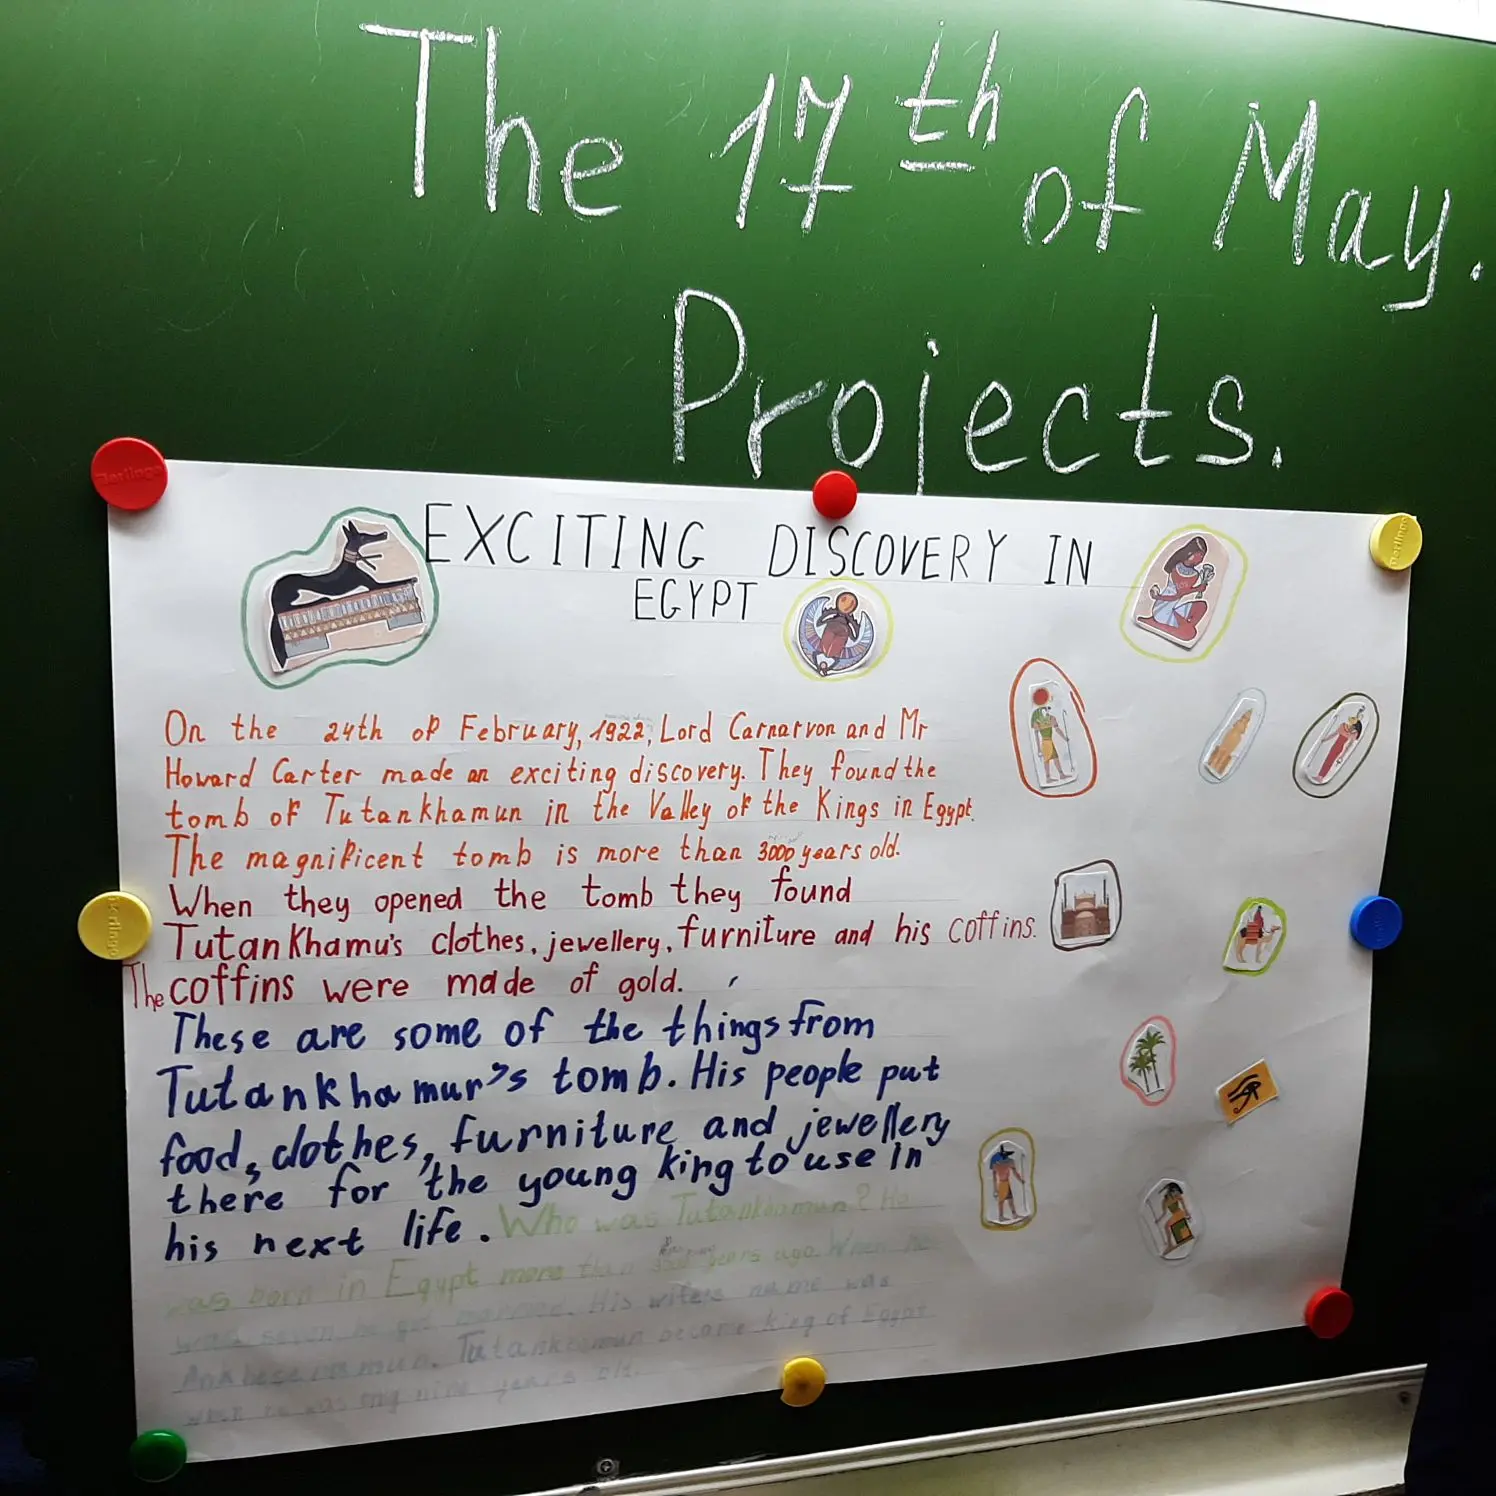 The 17th of May.
Projects.
EXCITING DISCOVERY IN
EGYPT
On the 24th of February, 1922, Lord Carnarvon and Mr
Howard Carter made an exciting discovery. They found the
tomb of Tutankhamun in the Valley of the Kings in Egypt.
The magnificent tomb is more than 3000 years old.
When they opened the tomb they found
Tutankhamu's clothes, jewellery, furniture and his coffins.
The coffins were made of gold.
These are some of the things from
Tutankhamur's tomb. His people put
food, clothes, furniture and jewellery
there for the young king to use in
his next life. Who was Tutankhamun? He
was born in Egypt more than years ago. When he
was seven he got married. His wife's name was
Tutankhamun became king of Egypt
when he was only nine years old.
Berlingo
Berlingo
Berlingo